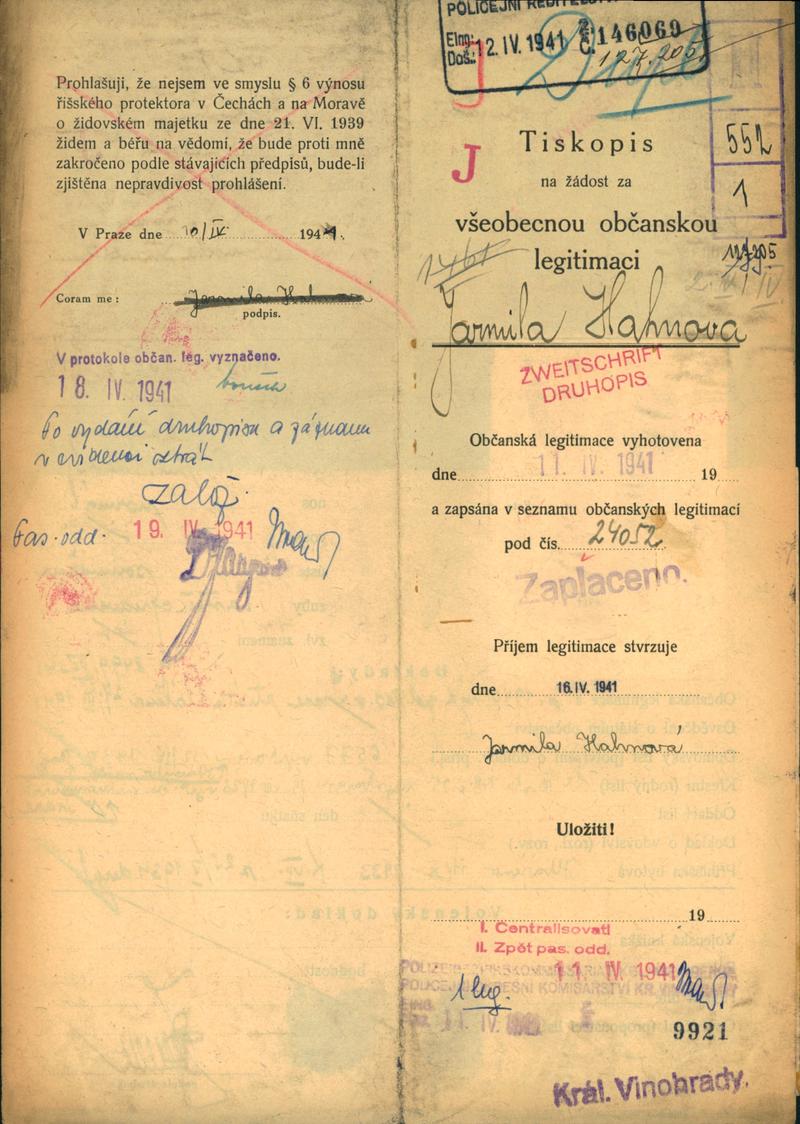 Prohlašuji, že nejsem ve smyslu § 6 výnosu
říšského protektora v Čechách a na Moravě
o židovském majetku ze dne 21. VI. 1939
židem a béřu na vědomí, že bude proti mně
zakročeno podle stávajících předpisů, bude-li
zjištěna nepravdivost prohlášení.
V Praze dne 10/IV. 1941.
Coram me: Jarmila Hahnova
podpis.
V protokole občan. leg. vyznačeno.
18. IV. 1941
Po vydání druhopisu a záznamu
v evidenci ztrát
založ.
Pas. odd. 19. IV. 1941
POLICEJNÍ ŘEDITELST
Eing.:
Doš.: 12. IV. 1941 Č. 146069
127.205
J
552
1
J
Tiskopis
na žádost za
všeobecnou občanskou
legitimaci
Jarmila Hahnova
ZWEITSCHRIFT
DRUHOPIS
Občanská legitimace vyhotovena
dne 11. IV. 1941 19
a zapsána v seznamu občanských legitimací
pod čís. 24052
Zaplaceno.
Příjem legitimace stvrzuje
dne 16. IV. 1941
Jarmila Hahnová
Uložiti!
19
I. Centralisovati
II. Zpět pas. odd.
11. IV. 1941
1 leg.
9921
Král. Vinohrady.